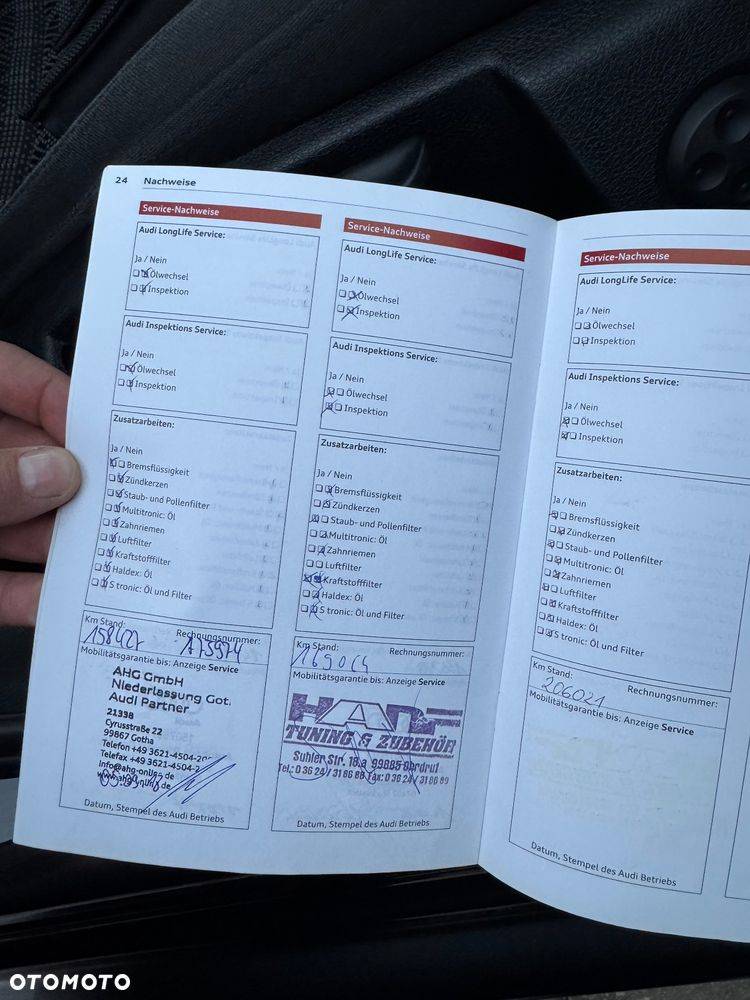 24 Nachweise
Service-Nachweise
Audi LongLife Service:
Ja / Nein
Ölwechsel
Inspektion
Audi Inspektions Service:
Ja / Nein
Ölwechsel
Inspektion
Zusatzarbeiten:
Ja / Nein
Bremsflüssigkeit
Zündkerzen
Staub- und Pollenfilter
Multitronic: Öl
Zahnriemen
Luftfilter
Kraftstofffilter
Haldex: Öl
S tronic: Öl und Filter
Km Stand: Rechnungsnummer:
158427 A75974
Mobilitätsgarantie bis: Anzeige Service
AHG GmbH
Niederlassung Got.
Audi Partner
21338
Cyrusstraße 22
99867 Gotha
Telefon +49 3621-4504-20
Telefax +49 3621-4504-2
info@ahg-online.de
Datum, Stempel des Audi Betriebs
Service-Nachweise
Audi LongLife Service:
Ja / Nein
Ölwechsel
Inspektion
Audi Inspektions Service:
Ja / Nein
Ölwechsel
Inspektion
Zusatzarbeiten:
Ja / Nein
Bremsflüssigkeit
Zündkerzen
Staub- und Pollenfilter
Multitronic: Öl
Zahnriemen
Luftfilter
Kraftstofffilter
Haldex: Öl
S tronic: Öl und Filter
Km Stand: Rechnungsnummer:
Mobilitätsgarantie bis: Anzeige Service
TUNING & ZUBEHÖR
Suhler Str. 16 a 99885 Ohrdruf
Tel.: 0 36 24 / 31 86 88 Fax: 0 36 24 / 31 86 89
Datum, Stempel des Audi Betriebs
Service-Nachweise
Audi LongLife Service:
Ja / Nein
Ölwechsel
Inspektion
Audi Inspektions Service:
Ja / Nein
Ölwechsel
Inspektion
Zusatzarbeiten:
Ja / Nein
Bremsflüssigkeit
Zündkerzen
Staub- und Pollenfilter
Multitronic: Öl
Zahnriemen
Luftfilter
Kraftstofffilter
Haldex: Öl
S tronic: Öl und Filter
Km Stand: Rechnungsnummer:
206021
Mobilitätsgarantie bis: Anzeige Service
Datum, Stempel des Audi Betriebs
OTOMOTO